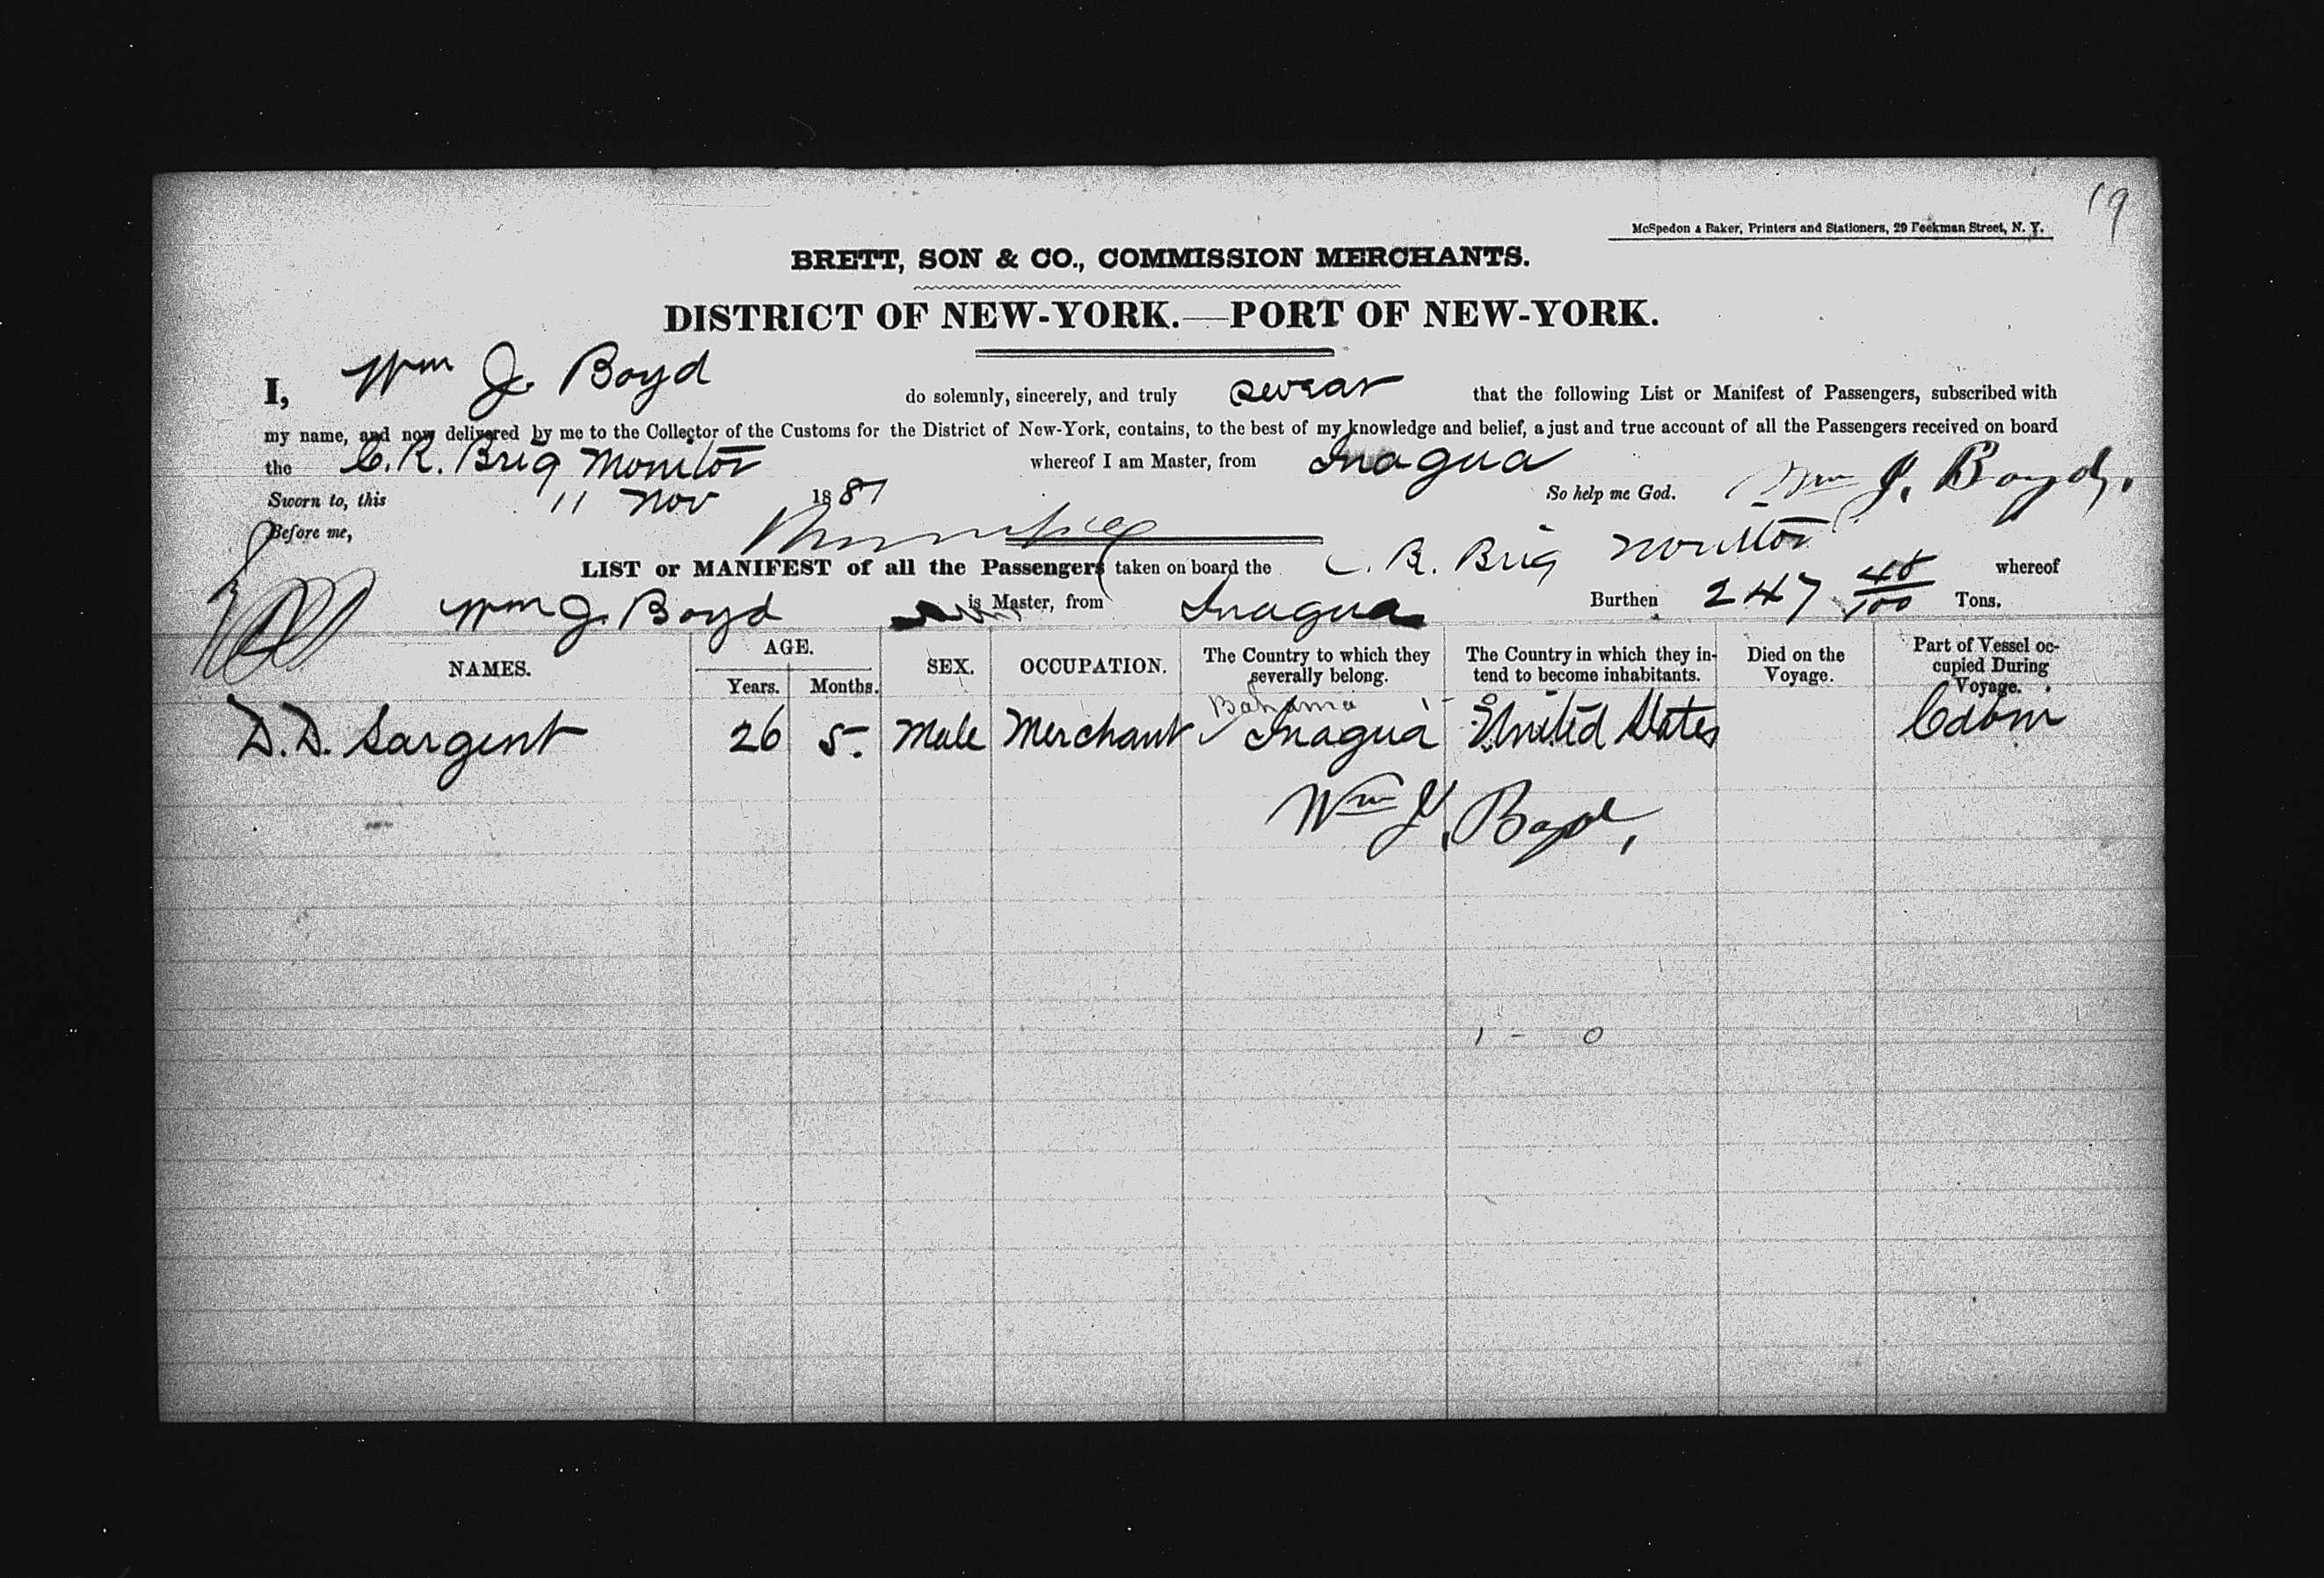 19
McSpedon & Baker, Printers and Stationers, 29 Beekman Street, N. Y.
BRETT, SON & CO., COMMISSION MERCHANTS.
DISTRICT OF NEW-YORK.—PORT OF NEW-YORK.
I, Wm J. Boyd do solemnly, sincerely, and truly swear that the following List or Manifest of Passengers, subscribed with
my name, and now delivered by me to the Collector of the Customs for the District of New-York, contains, to the best of my knowledge and belief, a just and true account of all the Passengers received on board
the Brig Monitor whereof I am Master, from Inagua
Sworn to, this 11 Nov 1887 So help me God. Wm J. Boyd.
Before me,
LIST or MANIFEST of all the Passengers taken on board the Brig Monitor whereof
Wm J. Boyd is Master, from Inagua Burthen 247 48/100 Tons.
NAMES. AGE. Years. Months. SEX. OCCUPATION. The Country to which they severally belong. The Country in which they intend to become inhabitants. Died on the Voyage. Part of Vessel occupied During Voyage.
Bahama
D. D. Sargent 26 5 Male Merchant Inagua United States Cabin
Wm J. Boyd,
1 - 0